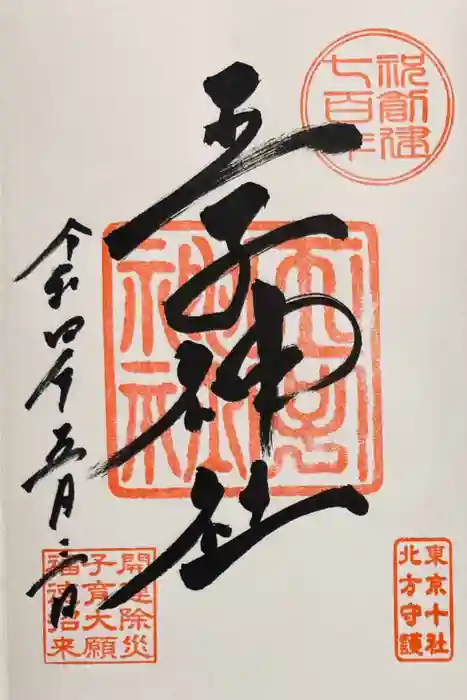 祝創建
七百年
王子神社
令和四年五月三日
開運除災
子育大願
福徳招来
東京十社
北方守護